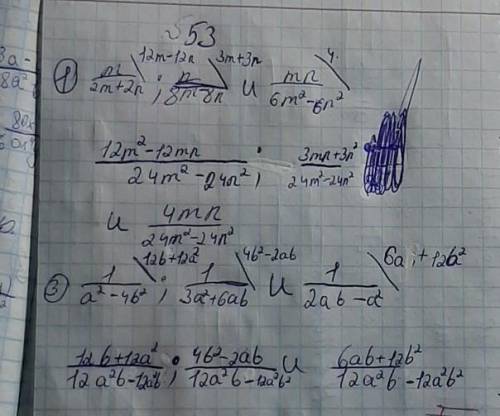 553
① m/(2m+2n) \12m-12n ; n/(8m-8n) \3m+3n и mn/(6m²-6n²) \4.
(12m²-12mn)/(24m²-24n²) ; (3mn+3n²)/(24m²-24n²)
и 4mn/(24m²-24n²)
③ 1/(a²-4b²) \12b+12a² ; 1/(3a²+6ab) \4b²-2ab и 1/(2ab-a²) \6a + 12b²
(12b+12a²)/(12a²b-12a²b) ; (4b²-2ab)/(12a²b-12a²b²) и (6ab+12b²)/(12a²b-12a²b²)